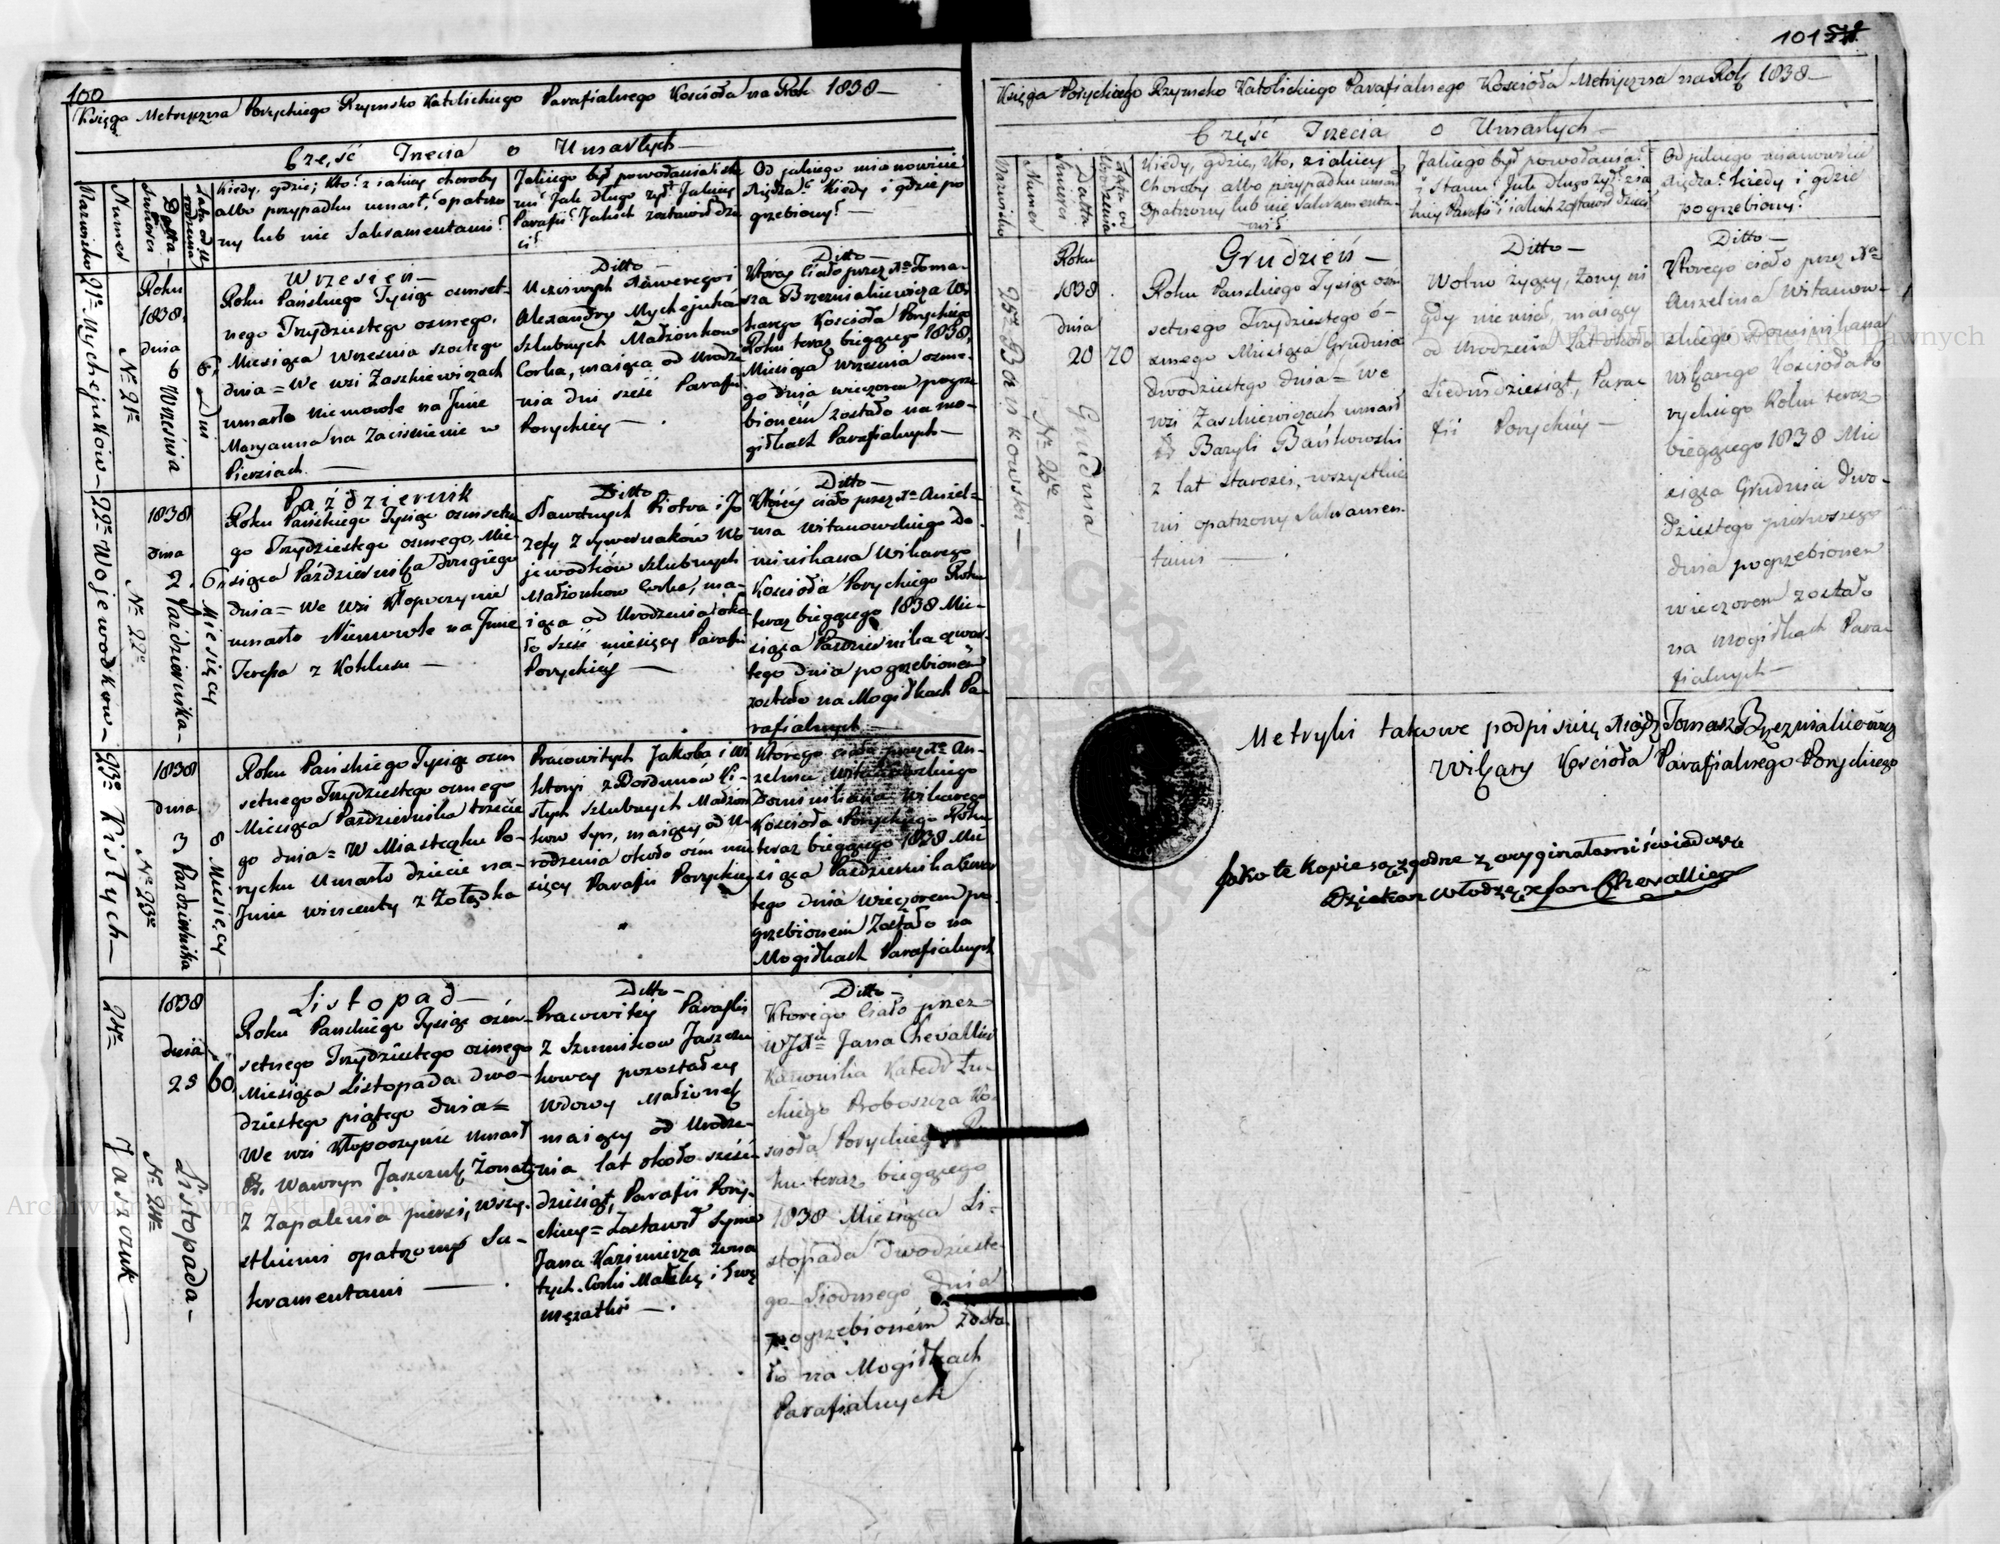 100
Księga Metryczna Poryckiego Rzymsko Katolickiego Parafialnego Kościoła na Rok 1838 —
Część Trzecia o Umarłych —
Nazwisko
Numer
Śmierci Datta
Lata od Urodzenia
Kiedy, gdzie; kto? z iakiey choroby
albo przypadku umarł, opatrzo
ny lub nie Sakramentami?
Jakiego był powołania i sta
nu? Jak długo żył? Jakiey
Parafii? Jakich zostawił dzie
ci?
Od jakiego mianowicie
Xiędza? Kiedy i gdzie po
grzebiony? —
21e Mychejuków —
Nr 21e
Roku
1838,
dnia
6 Września
6. Dni
Wrzesień —
Roku Pańskiego Tysiąc ośmset-
nego Trzydziestego osmego,
Miesiąca Września szostego
dnia = We wsi Zaszkiewiczach
umarło niemowle na Jmie
Maryanna na Zacisnienie w
Piersiach. —
Ditto —
Uczciwych Xawerego i
Alexandry Mychejuków
Szlubnych Małżonkow
Corka, maiąca od Urodze
nia dni sześć Parafii
Poryckiey —
Ditto —
Ktorey Ciało przez Xa Toma-
sza Brzezniakiewicza Wi
karego Kościoła Poryckiego
Roku teraz biegącego 1838,
Miesiąca Września osme-
go dnia wieczorem pogrze
bioném zostało na mo-
giłkach Parafialnych —
22e Wojewodkow —
Nr 22e
1838
dnia
2 Października —
6 Miesięcy
Październik
Roku Pańskiego Tysiąc ośmsetne
go Trzydziestego osmego, Mie-
siąca Października Drugiego
dnia = We wsi Kłopoczynie
umarło Niemowle na Jmie
Teressa z Kokluszu —
Ditto
Sławetnych Piotra i Jo
zefy z Sywernaków Wo
jewodków Szlubnych
Małżonkow Corka, ma-
iąca od Urodzenia oko
ło sześć miesięcy Parafii
Poryckiéy —
Ditto —
Ktorey ciało przez Xa Anzel-
ma Witanowskiego Do
minikana Wikarego
Kościoła Poryckiego Roku
teraz biegącego 1838 Mie-
siąca Października czwar-
tego dnia pogrzebioném
zostało na Mogiłkach Pa-
rafialnych —
23e Kisłych —
Nr 23e
1838
dnia
3 Października
8 Miesięcy —
Roku Pańskiego Tysiąc ośm
setnego Trzydziestego osmego
Miesiąca Października trzecie
go dnia = W Miasteczku Po-
rycku Umarło dziecie na-
Jmie Wincenty z Żołądka
Pracowitych Jakoba i Wi
ktoryi z Bordunów Ki-
słych Szlubnych Małżon
kow Syn, maiący od U-
rodzenia około ośm mie
sięcy Parafii Poryckiey
Ktorego ciało przez Xa An-
zelma Witanowskiego
Dominikana Wikarego
Kościoła Poryckiego Roku
teraz biegącego 1838 Mie
siąca Października Czwar
tego dnia wieczorem po-
grzebionem Zostało na
Mogiłkach Parafialnych
24e Jaszczuk —
Nr 24e
1838
dnia
25
Listopada —
60
Listopad —
Roku Pańskiego Tysiąc ośm-
setnego Trzydziestego osmego
Miesiąca Listopada dwo-
dziestego piątego dnia =
We wsi Kłopoczynie umarł
Wawrzyn Jaszczuk Żonaty
z Zapalenia piersi, wszy-
stkiemi opatrzony Sa-
kramentami —
Ditto —
Pracowitéy Paraski
z Szumikow Jaszczu
kowey pozostałey
Wdowy Małżonek
maiący od Urodze-
nia lat około sześć
dziesiąt, Parafii Pory-
ckiey = Zostawił Synow
Jana Kazimierza Żona
tych. Corki i Ewę
mężatki —
Ditto —
Ktorego Ciało przez
WJXa Jana Chevallier
Kanonika Katedr Łu-
ckiego Proboszcza Ko-
scioła Poryckiego Ro
ku teraz biegącego
1838 Miesiąca Li-
stopada Dwodzieste-
go Siodmego dnia
pogrzebioném zosta-
ło na Mogiłkach
Parafialnych
101
Księga Poryckiego Rzymsko Katolickiego Parafialnego Kościoła Metryczna na Rok 1838 —
Część Trzecia o Umarłych —
Nazwisko
Numer
Śmierci Datta
Lata od Urodzenia
Kiedy, gdzie, kto, z iakiey
Choroby albo przypadku umarł
Opatrzony lub nie Sakramenta-
mi?
Jakiego był powołania?
i Stanu? Jak długo żył? z ia
kiey Parafii? iakich zostawił dzieci
Od jakiego mianowicie
Xiędza? kiedy i gdzie
pogrzebiony?
25e Bańkowski —
Nr 25e
Roku
1838
dnia
20
Grudnia
70
Grudzień —
Roku Pańskiego Tysiąc ośm
setnego Trzydziestego ó-
smego Miesiąca Grudnia
dwodziestego dnia = We
wsi Zaszkiewiczach umarł
Bazyli Bańkowski
z lat Starości, wszystkie
mi opatrzony Sakramen
tami —
Ditto —
Wolno żyący, żony ni
gdy nie miał, maiący
od Urodzenia Lat około
Siedmdziesiąt, Para
fii Poryckiéy —
Ditto —
Ktorego ciało przez Xa
Anzelma Witanow-
skiego Dominikana
Wikarego Kościoła Po
ryckiego Roku teraz
biegącego 1838 Mie
siąca Grudnia Dwo-
dziestego pierwszego
dnia pogrzebionem
wieczorem zostało
na Mogiłkach Para
fialnych —
Metryki takowe podpisuię Xiądz Tomasz Brzezniakiewicz
Wikary Kościoła Parafialnego Poryckiego
Jako te kopie są zgodne z oryginałami świadczę
Dziekan Włodz. X Jan Chevallier
Archiwum Główne Akt Dawnych
Archiwum Główne Akt Dawnych